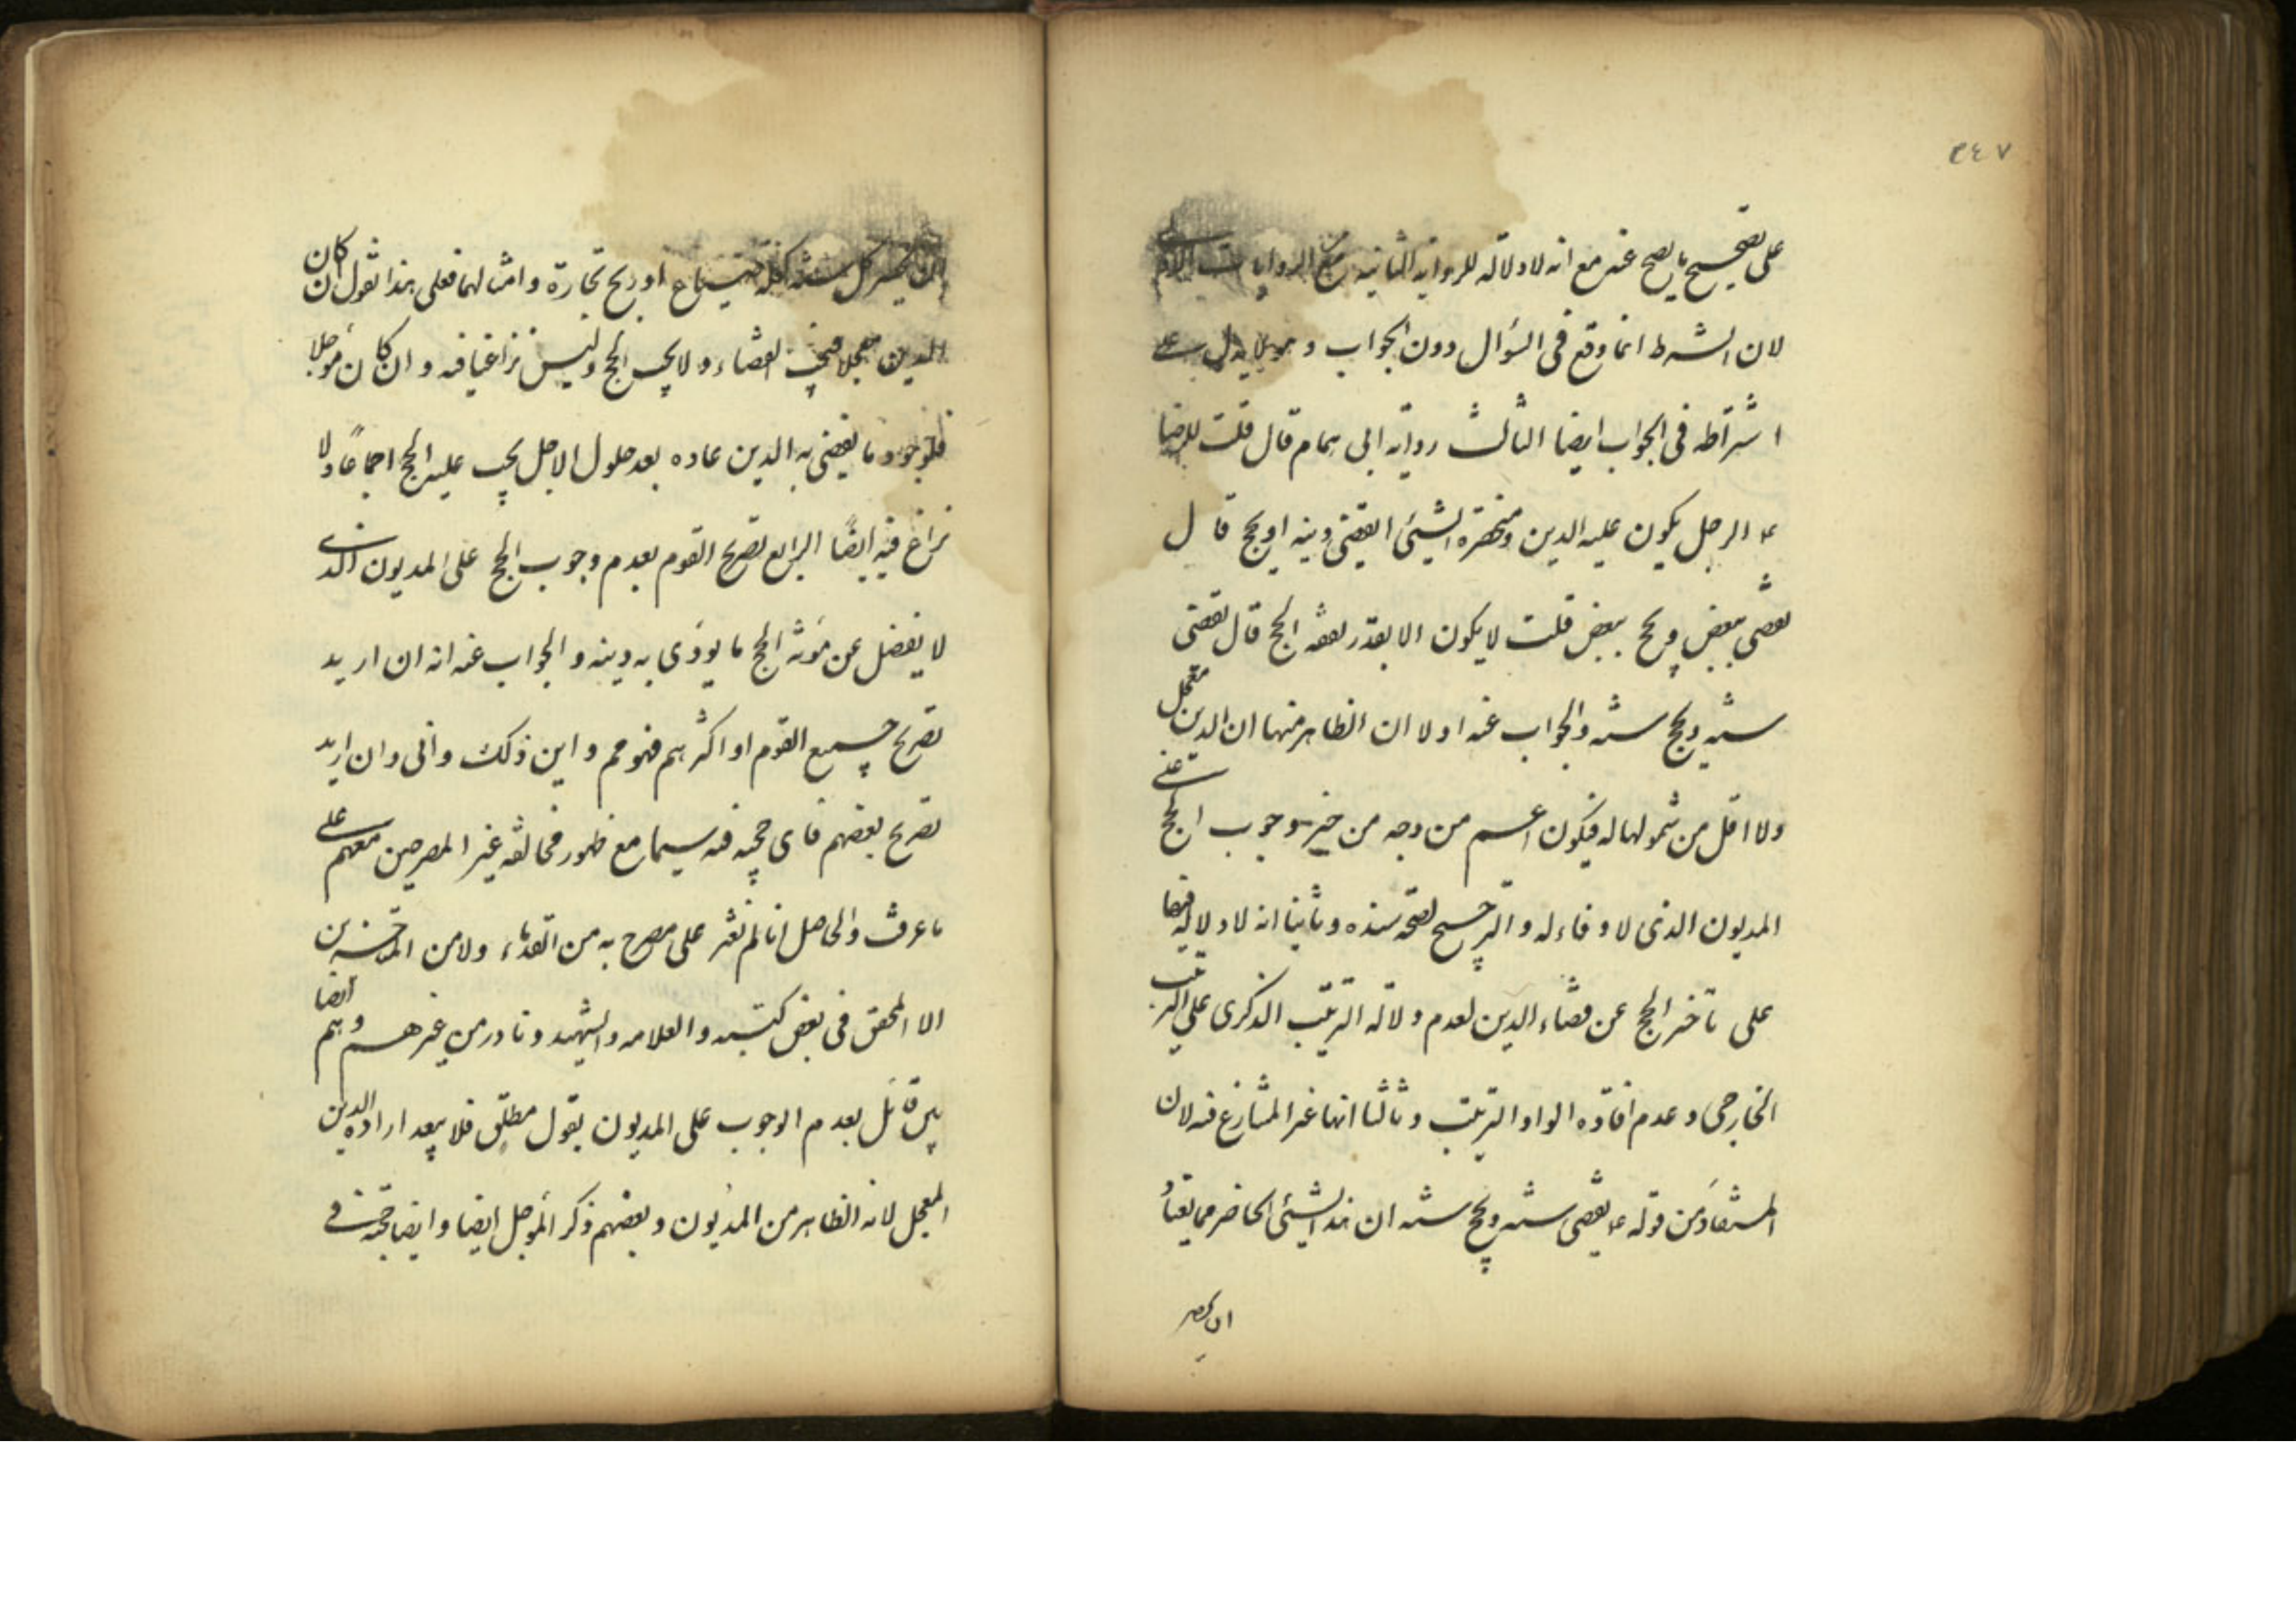 ٣٤٧
على تصحيح ما يصح عنه مع انه لا دلالة للرواية الثانية من الروايات
لان الشرط انما وقع في السؤال دون الجواب و هو لا يدل على
اشتراطه في الجواب ايضا الثالث رواية ابى همام قال قلت للرضا
ع الرجل يكون عليه الدين و يحضره الشيئ ايقضى دينه او يحج قال
يقضى ببعض و يحج ببعض قلت لا يكون الا بقدر نفقة الحج قال يقضى
سنة و يحج سنة و الجواب عنه اولا ان الظاهر منها ان الدين معجل
ولا اقل من شمولها له فيكون اعم من وجه من خبر وجوب الحج على
المديون الذى لا وفاء له و الترجيح لصحة سنده و ثانيا انه لا دلالة فيها
على تأخر الحج عن قضاء الدين لعدم دلالة الترتيب الذكرى على الترتيب
الخارجى و عدم افادة الواو الترتيب و ثالثا انها غير المتنازع فيه لان
المستفاد من قوله ع يقضى سنة و يحج سنة ان هذا الشيئ الحاضر مما يعتاد
ان يحصر
ان يحصر كل سنة كغلة ضياع او ربح تجارة و امثالهما فعلى هذا نقول ان كان
الدين معجلا فيجب القضاء و لا يجب الحج و ليس نزاعنا فيه و ان كان مؤجلا
فلوجود ما يقضى به الدين عادة بعد حلول الاجل يجب عليه الحج اجماعا و لا
نزاع فيه ايضًا الرابع تصريح القوم بعدم وجوب الحج على المديون الذى
لا يفضل عن مؤنة الحج ما يؤدى به دينه و الجواب عنه انه ان اريد
تصريح جميع القوم او اكثرهم فهو مم و اين ذلك و انى و ان اريد
تصريح بعضهم فاى حجية فيه سيما مع ظهور مخالفة غير المصرحين معهم على
ما عرفت و الحاصل انا لم نعثر على مصرح به من القدماء و لا من المتأخرين
الا المحقق في بعض كتبه و العلامة و الشهيد و نادر من غيرهم و هم ايضا
بين قائل بعدم الوجوب على المديون بقول مطلق فلا يبعد ارادة الدين
المعجل لانه الظاهر من المديون و بعضهم ذكر المؤجل ايضا و ايضا حجة في